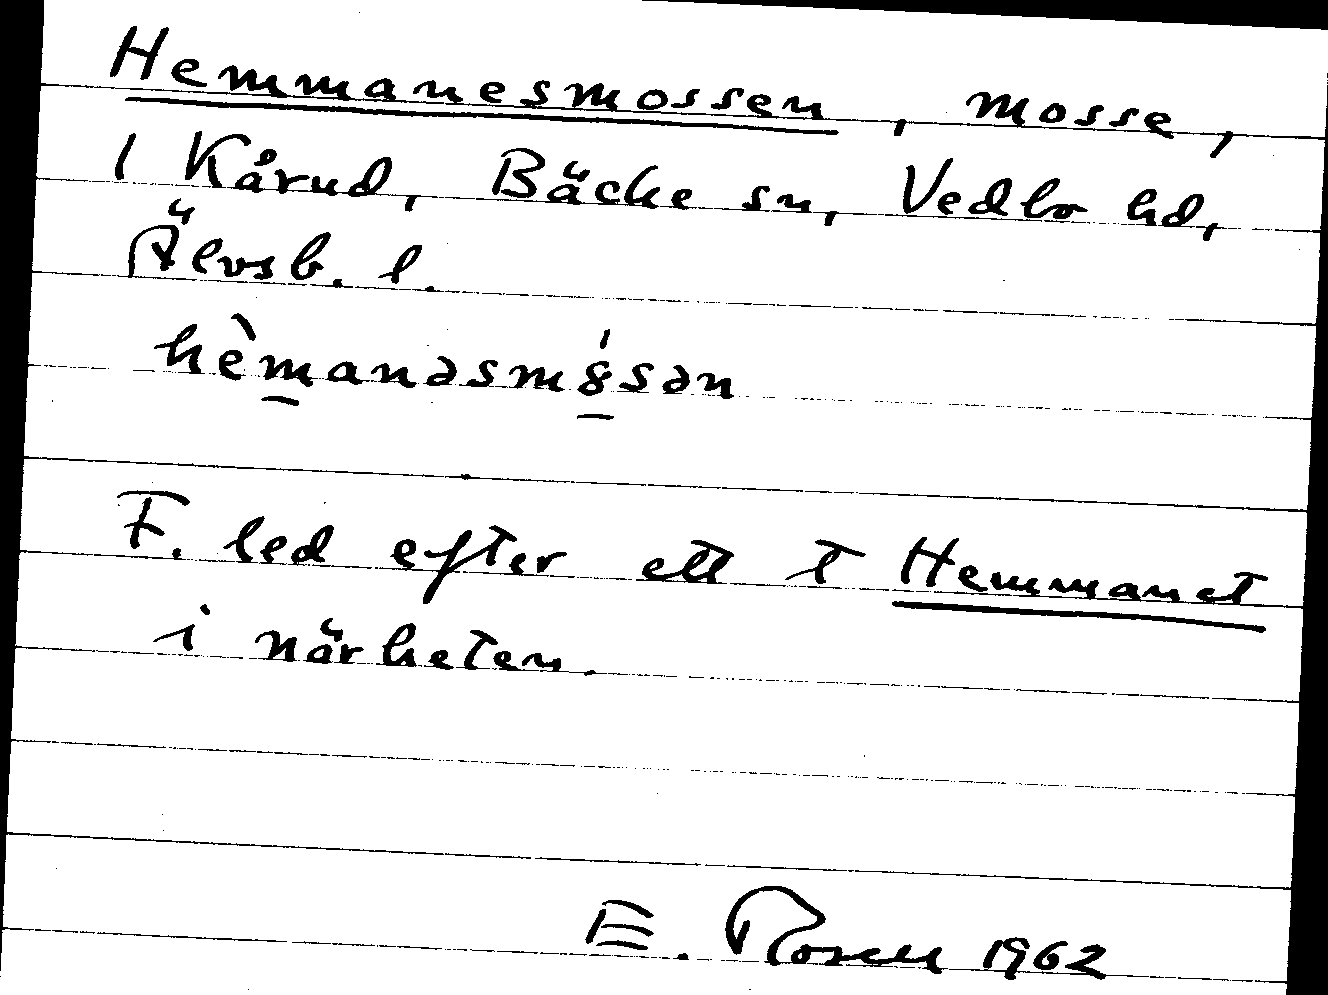 Hemmanesmossen, mosse,
1 Kårud, Bäcke sn, Vedbo hd,
Älvsb. l.
hèmanəsmȣ́sən
F. led efter ett t Hemmanet
i närheten.
E. Rosell 1962